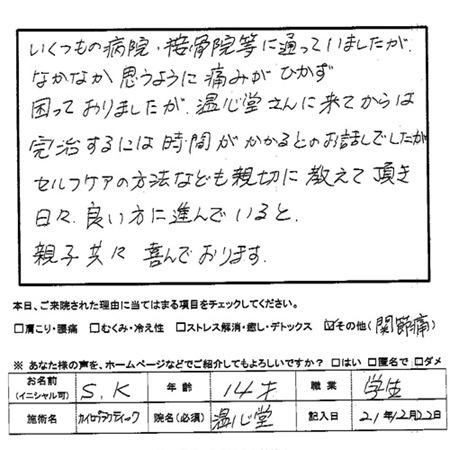 いくつもの病院・接骨院等に通っていましたが、
なかなか思うように痛みがひかず
困っておりましたが、温心堂さんに来てからは
完治するには時間がかかるとのお話しでしたが
セルフケアの方法なども親切に教えて頂き
日々、良い方に進んでいると、
親子共々喜んでおります。
本日、ご来院された理由に当てはまる項目をチェックしてください。
□肩こり・腰痛 □むくみ・冷え性 □ストレス解消・癒し・デトックス ☑その他(関節痛)
※ あなた様の声を、ホームページなどでご紹介してもよろしいですか? □はい □匿名で □ダメ
お名前(イニシャル可) S.K 年齢 14才 職業 学生
施術名 カイロプラクティック 院名(必須) 温心堂 記入日 21年12月22日